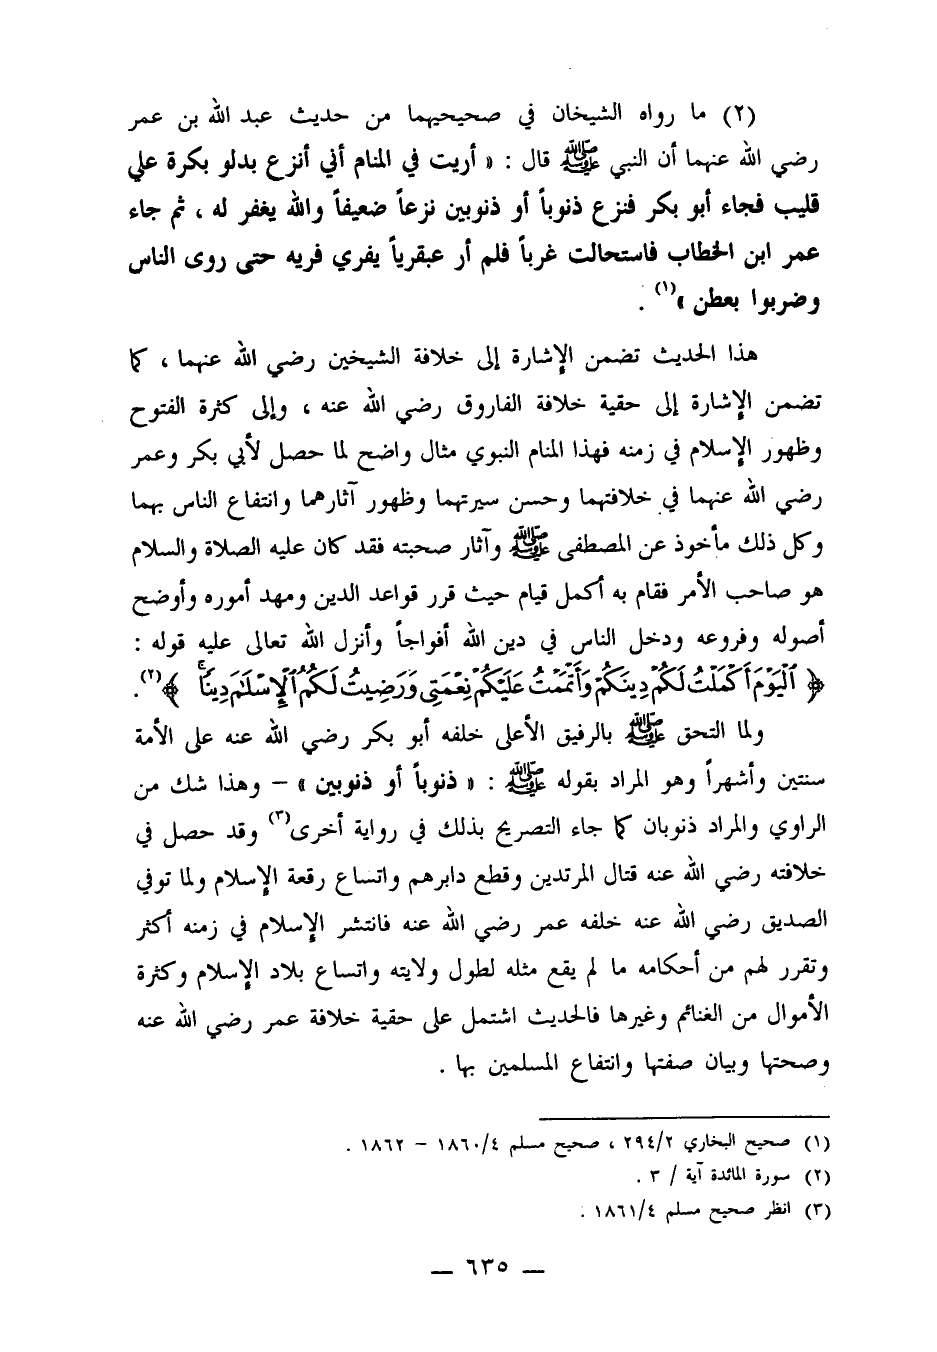 (٢) ما رواه الشيخان في صحيحيهما من حديث عبد الله بن عمر
رضي الله عنهما أن النبي ﷺ قال : « أريت في المنام أني أنزع بدلو بكرة علي
قليب فجاء أبو بكر فنزع ذنوباً أو ذنوبين نزعاً ضعيفاً والله يغفر له ، ثم جاء
عمر ابن الخطاب فاستحالت غرباً فلم أر عبقرياً يفري فريه حتى روى الناس
وضربوا بعطن »(١) .
هذا الحديث تضمن الإشارة إلى خلافة الشيخين رضي الله عنهما ، كما
تضمن الإشارة إلى حقية خلافة الفاروق رضي الله عنه ، وإلى كثرة الفتوح
وظهور الإسلام في زمنه فهذا المنام النبوي مثال واضح لما حصل لأبي بكر وعمر
رضي الله عنهما في خلافتهما وحسن سيرتهما وظهور آثارهما وانتفاع الناس بهما
وكل ذلك مأخوذ عن المصطفى ﷺ وآثار صحبته فقد كان عليه الصلاة والسلام
هو صاحب الأمر فقام به أكمل قيام حيث قرر قواعد الدين ومهد أموره وأوضح
أصوله وفروعه ودخل الناس في دين الله أفواجاً وأنزل الله تعالى عليه قوله :
﴿ ٱلْيَوْمَ أَكْمَلْتُ لَكُمْ دِينَكُمْ وَأَتْمَمْتُ عَلَيْكُمْ نِعْمَتِى وَرَضِيتُ لَكُمُ ٱلْإِسْلَٰمَ دِينًاۚ ﴾(٢).
ولما التحق ﷺ بالرفيق الأعلى خلفه أبو بكر رضي الله عنه على الأمة
سنتين وأشهراً وهو المراد بقوله ﷺ : « ذنوباً أو ذنوبين » – وهذا شك من
الراوي والمراد ذنوبان كما جاء التصريح بذلك في رواية أخرى(٣) وقد حصل في
خلافته رضي الله عنه قتال المرتدين وقطع دابرهم واتساع رقعة الإسلام ولما توفي
الصديق رضي الله عنه خلفه عمر رضي الله عنه فانتشر الإسلام في زمنه أكثر
وتقرر لهم من أحكامه ما لم يقع مثله لطول ولايته واتساع بلاد الإسلام وكثرة
الأموال من الغنائم وغيرها فالحديث اشتمل على حقية خلافة عمر رضي الله عنه
وصحتها وبيان صفتها وانتفاع المسلمين بها .
(١) صحيح البخاري ٢٩٤/٢ ، صحيح مسلم ١٨٦٠/٤ – ١٨٦٢ .
(٢) سورة المائدة آية / ٣ .
(٣) انظر صحيح مسلم ١٨٦١/٤ .
— ٦٣٥ —